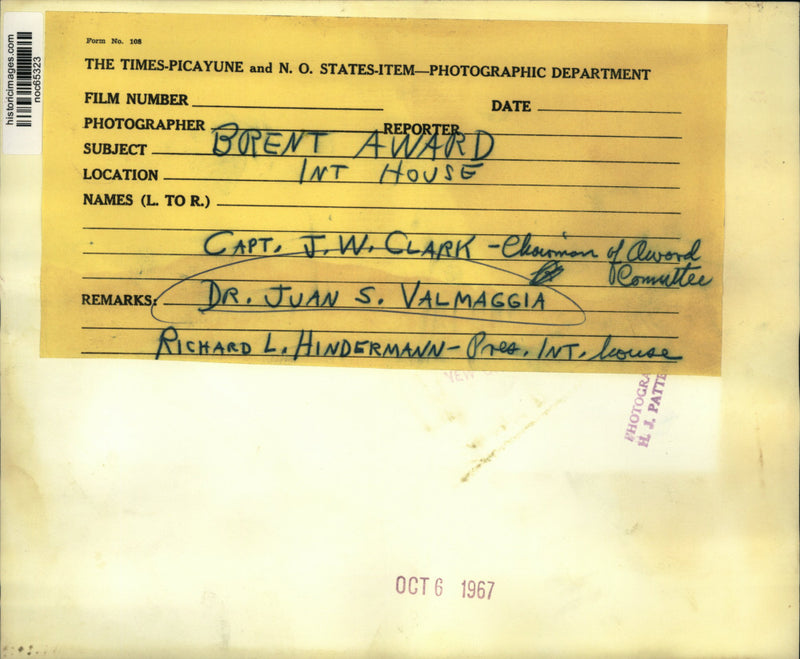 historicimages.com
noc65323
Form No. 108
THE TIMES-PICAYUNE and N. O. STATES-ITEM—PHOTOGRAPHIC DEPARTMENT
FILM NUMBER
DATE
PHOTOGRAPHER
REPORTER
SUBJECT BRENT AWARD
LOCATION INT HOUSE
NAMES (L. TO R.)
CAPT. J. W. CLARK - Chairman of Award
Committee
REMARKS: DR. JUAN S. VALMAGGIA
RICHARD L. HINDERMANN - Pres. INT. house
PHOTOGRA
H. J. PATTE
OCT 6 1967